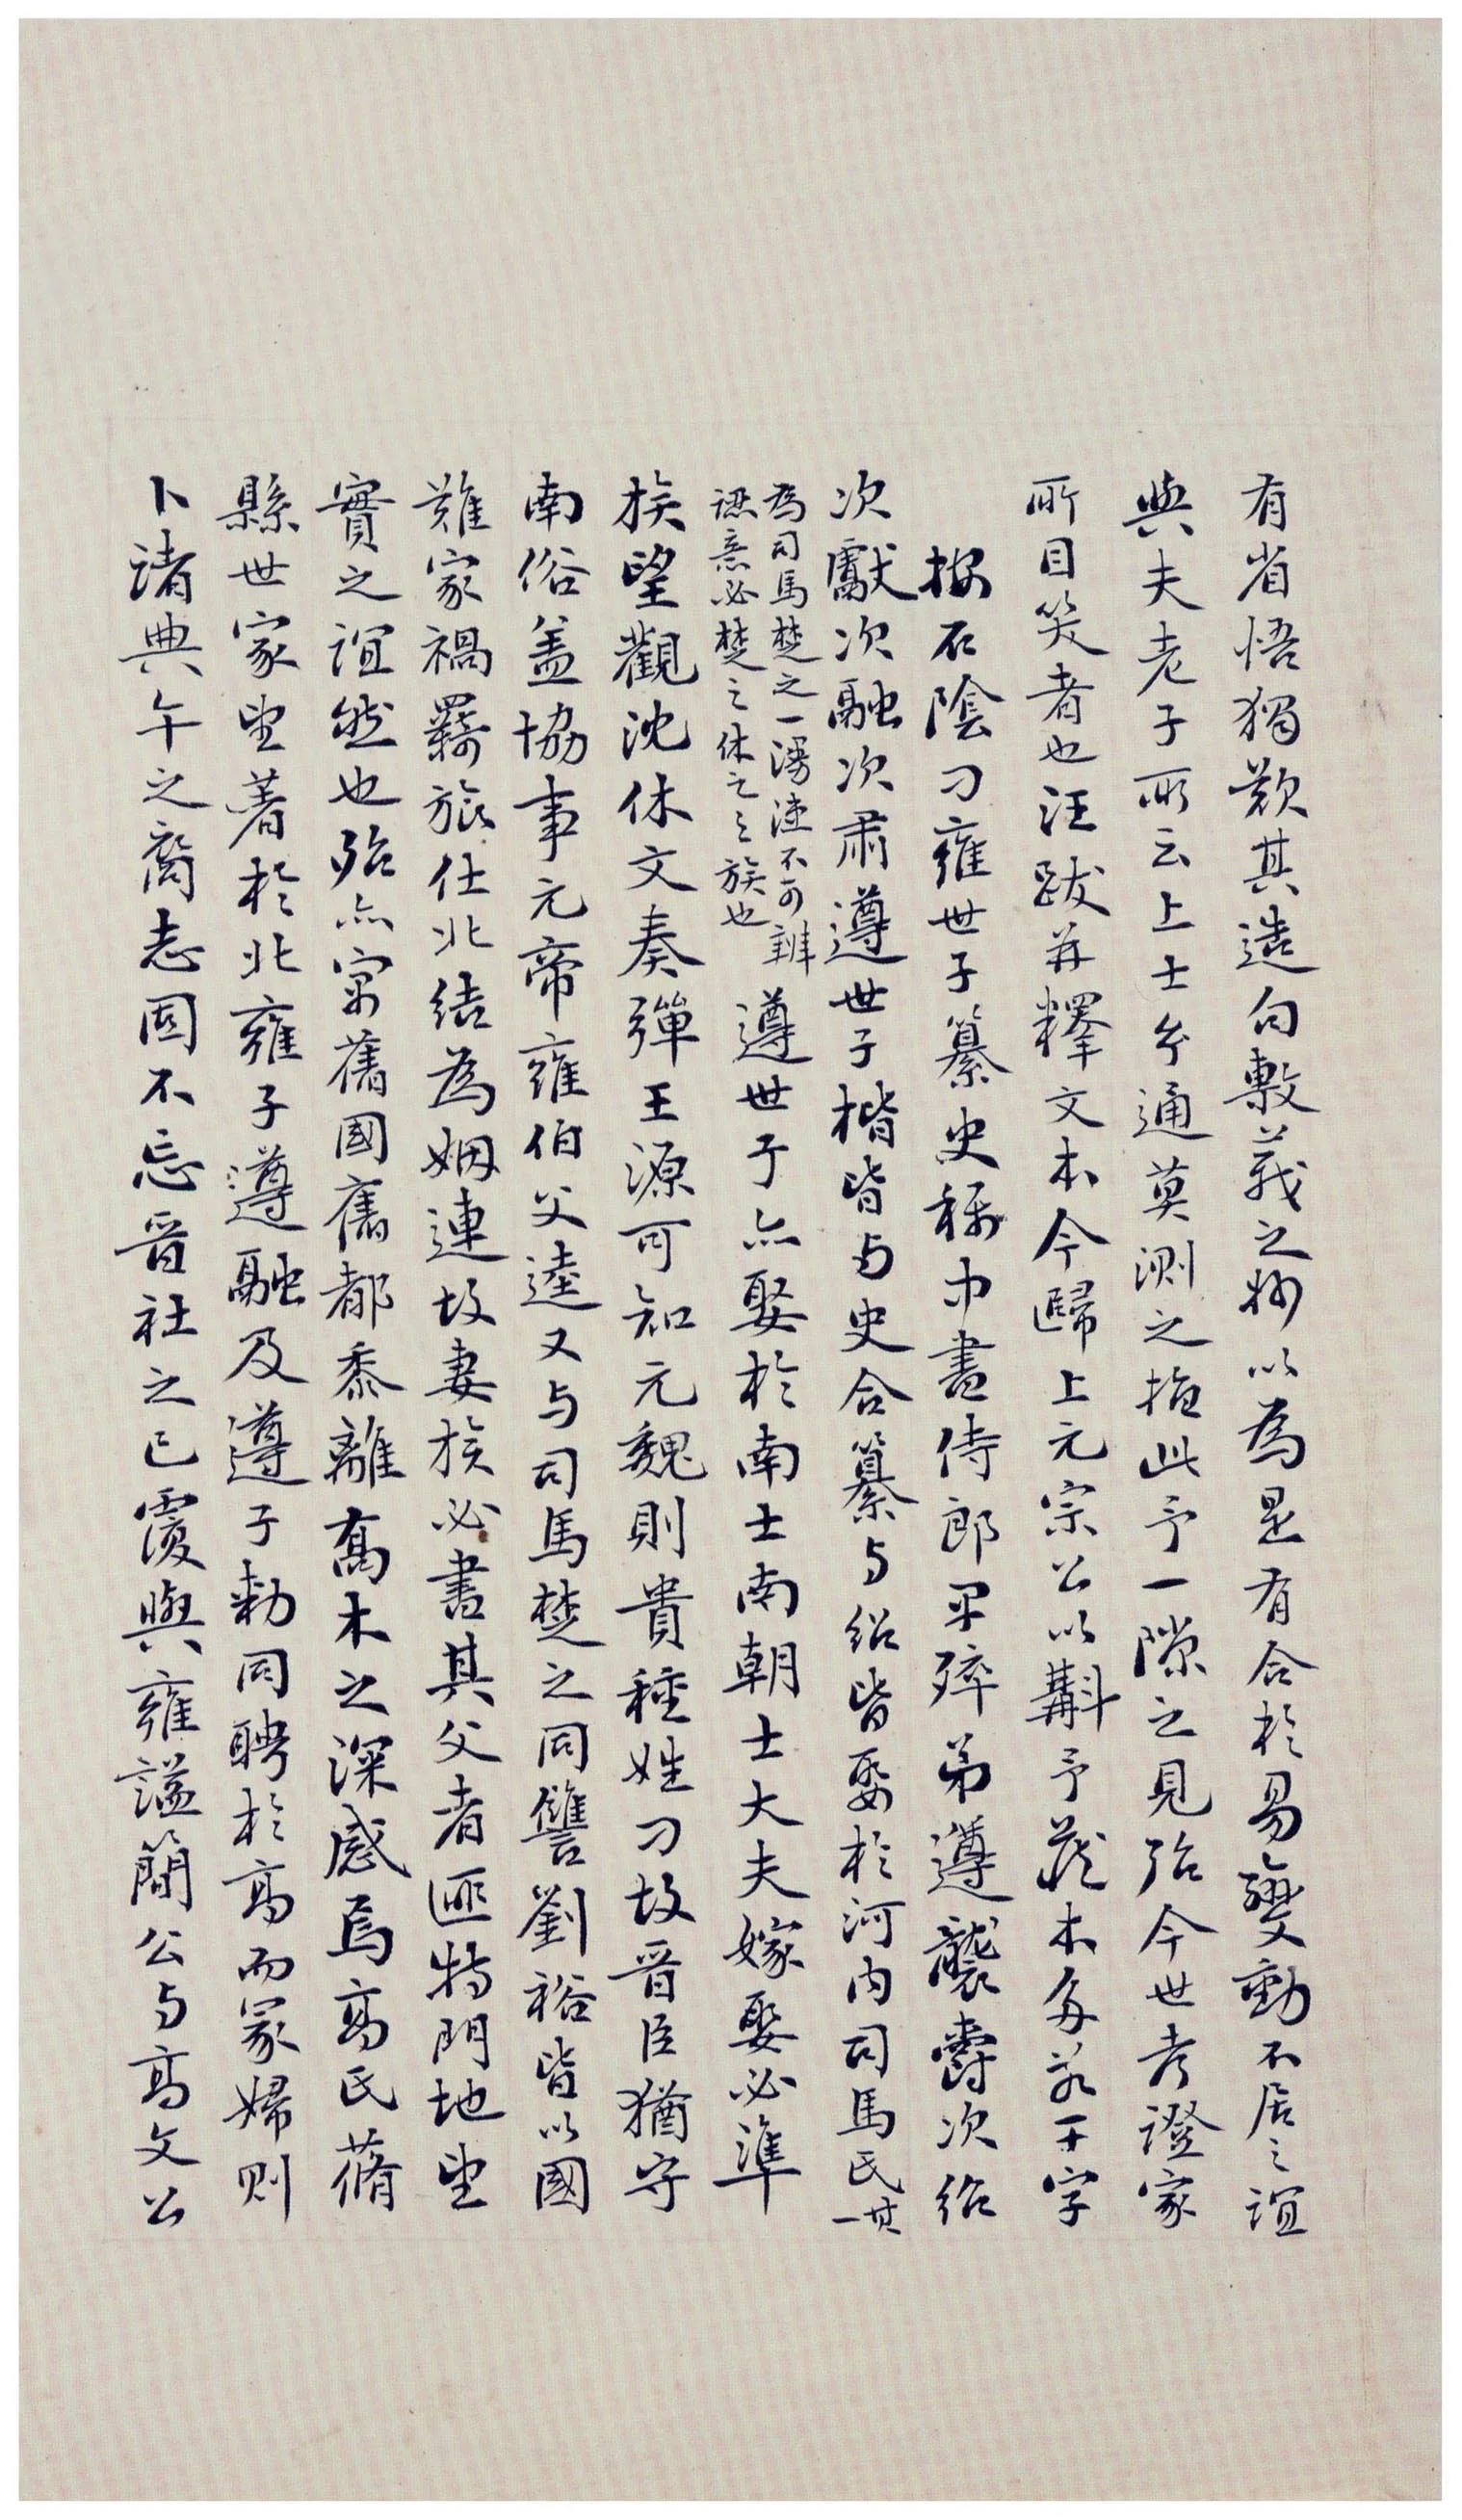 有省悟獨歎其造句敷義之妙以為是有合於易變動不居之誼
與夫老子所云上士兮通莫測之恉此予一隙之見殆今世考證家
所目笑者也汪跋并釋文本今歸上元宗公以斠予藏本多若干字
按石陰刁雍世子纂史稱中書侍郎早殍弟遵襲爵次紹
次獻次融次肅遵世子楷皆与史合纂与紹皆娶於河內司馬氏其一
為司馬楚之一漫漶不可辨
諦意必楚之休之之族也
遵世子亦娶於南士南朝士大夫嫁娶必準
族望觀沈休文奏彈王源可知元魏則貴種姓刁故晉臣猶守
南俗盖協事元帝雍伯父逵又与司馬楚之同讐劉裕皆以國
難家禍羇旅仕北結為姻連故妻族必書其父者匪特門地望
實之誼然也殆亦寓舊國舊都黍離喬木之深感焉高氏蓨
縣世家望著於北雍子遵融及遵子勑同聘於高而冢婦則
卜諸典午之裔志固不忘晉社之已霣與雍謚簡公与高文公